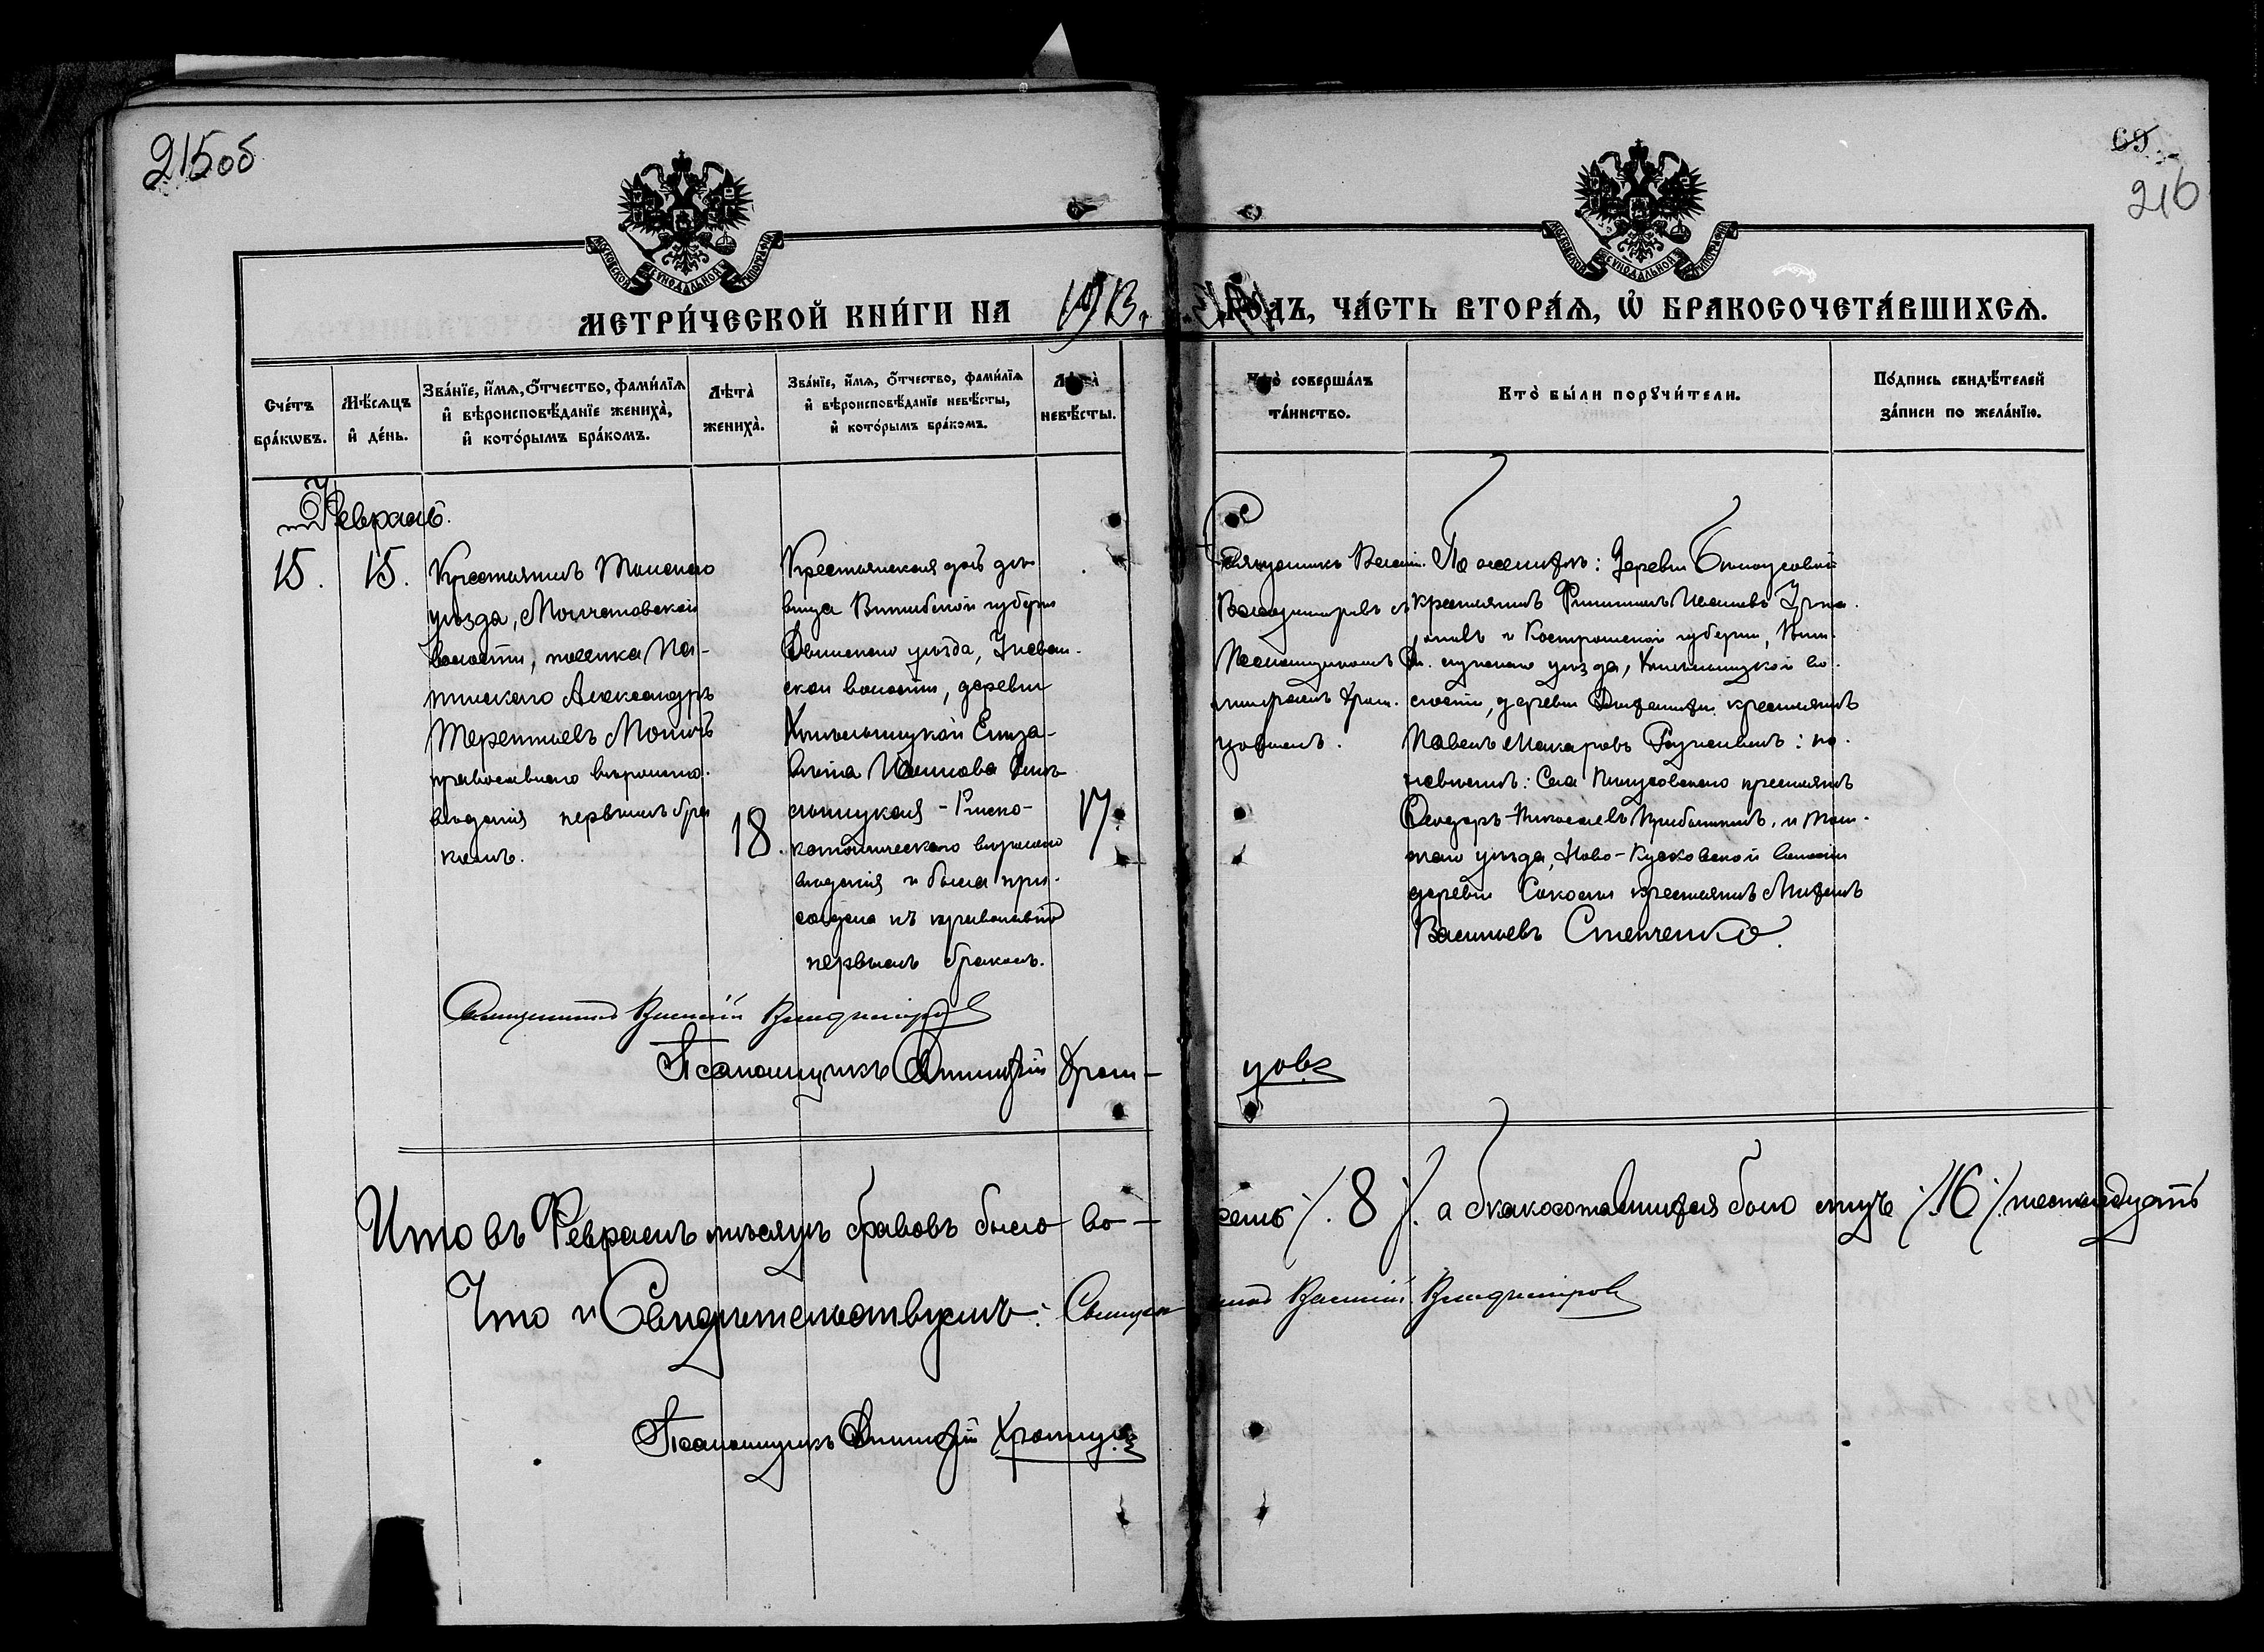 215об
69
216
МОСКОВСКОЙ СѴНОДАЛЬНОЙ ТИПОГРАФІИ
МОСКОВСКОЙ СѴНОДАЛЬНОЙ ТИПОГРАФІИ
МЕТРИ́ЧЕСКОЙ КНИ́ГИ НА 1913. ГО́ДЪ, ЧА́СТЬ ВТОРА́Ѧ, Ѽ БРАКОСОЧЕТА́ВШИХСѦ.
Сче́тъ бра́кѡвъ.
Мѣ́сѧцъ и҆ де́нь.
Зва́нїе, и҆́мѧ, ѻ҆́тчество, фамѝлїѧ
и҆ вѣроисповѣ́данїе жениха̀,
и҆ кото́рымъ бра́комъ.
Лѣ́та̀ жениха̀.
Зва́нїе, и҆́мѧ, ѻ҆́тчество, фамѝлїѧ
и҆ вѣроисповѣ́данїе невѣ́сты,
и҆ кото́рымъ бра́комъ.
Лѣ́та̀ невѣ́сты.
Кто̀ соверша́лъ
та́инство.
Кто̀ бы́ли порꙋчи́тели.
По́дпись свидѣ́телей
за́писи по жела́нїю.
Февраль.
15.
15.
Крестьянинъ Томскаго
уѣзда, Молчановской
волости, поселка
Александръ
Терентьевъ
православнаго вѣроиспо-
вѣданія первымъ бра
комъ.
18.
Крестьянская дочь дѣ-
вица Витебской губерн
Двинскаго уѣзда,
ской волости, деревни
Елиза-
вета Иванова
Римско-
католическаго вѣроиспо
вѣданія и была при-
соедена къ православію
первымъ бракомъ.
17.
Священникъ Василій
Владиміровъ съ
Псаломщикомъ Ди-
митріемъ Храм-
цовымъ.
По женихѣ: Деревни
крестьянинъ Филиппъ Ивановъ
и Костромской губерніи,
уѣзда, во-
лости, деревни крестьянинъ
Павелъ Макаровъ : по
невѣстѣ: Села крестьянинъ
Феодоръ Николаевъ и Том-
скаго уѣзда, Ново-Кусковской волости
деревни крестьянинъ
Васильевъ Степченко.
Священникъ Василій Владиміровъ
Псаломщикъ Димитрій Храм-цовъ
Итого въ Февралѣ мѣсяцѣ браковъ было во-семь /. 8 /. а было лицъ /. 16 /. шестнадцать
Что и Свидѣтельствуемъ: Священникъ Василій Владиміровъ
Псаломщикъ Димитрій Храмцовъ